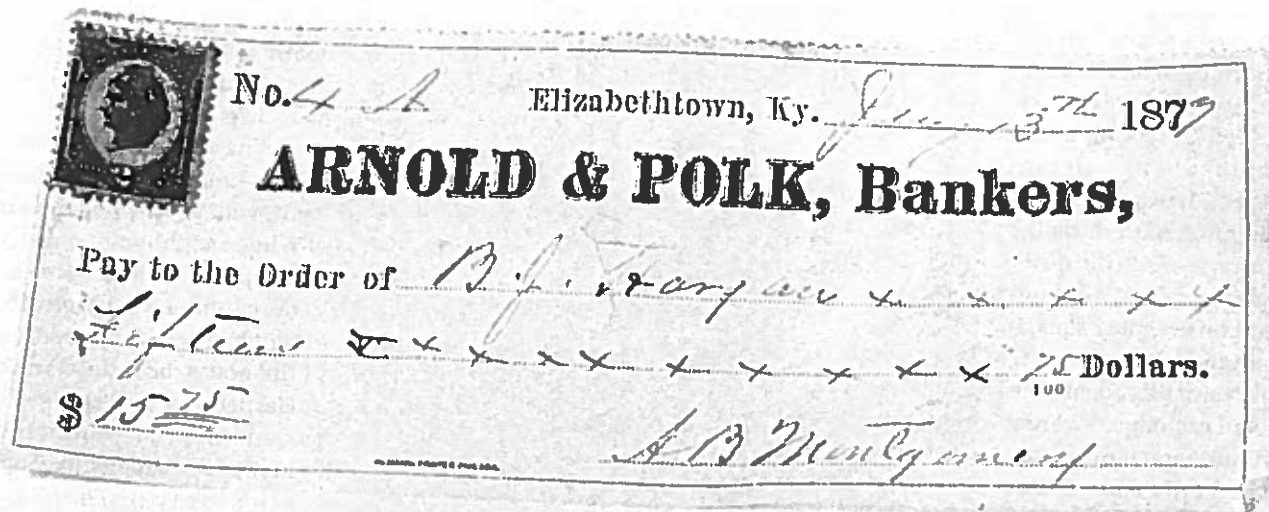 No. 4 A Elizabethtown, Ky. 13th 1877
ARNOLD & POLK, Bankers,
Pay to the Order of B. J. x x x x x
Fifteen x x x x x x x x x 75/100 Dollars.
$ 15 75
A B Montgomery